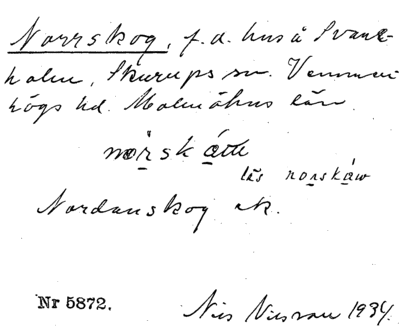 Norrskog, f.d. hus å Svane-
holm, Skurups sn. Vemmen-
högs hd. Malmöhus län.
läs norskáw
Nordanskog ek.
Nr 5872. Nils Nilsson 1934.